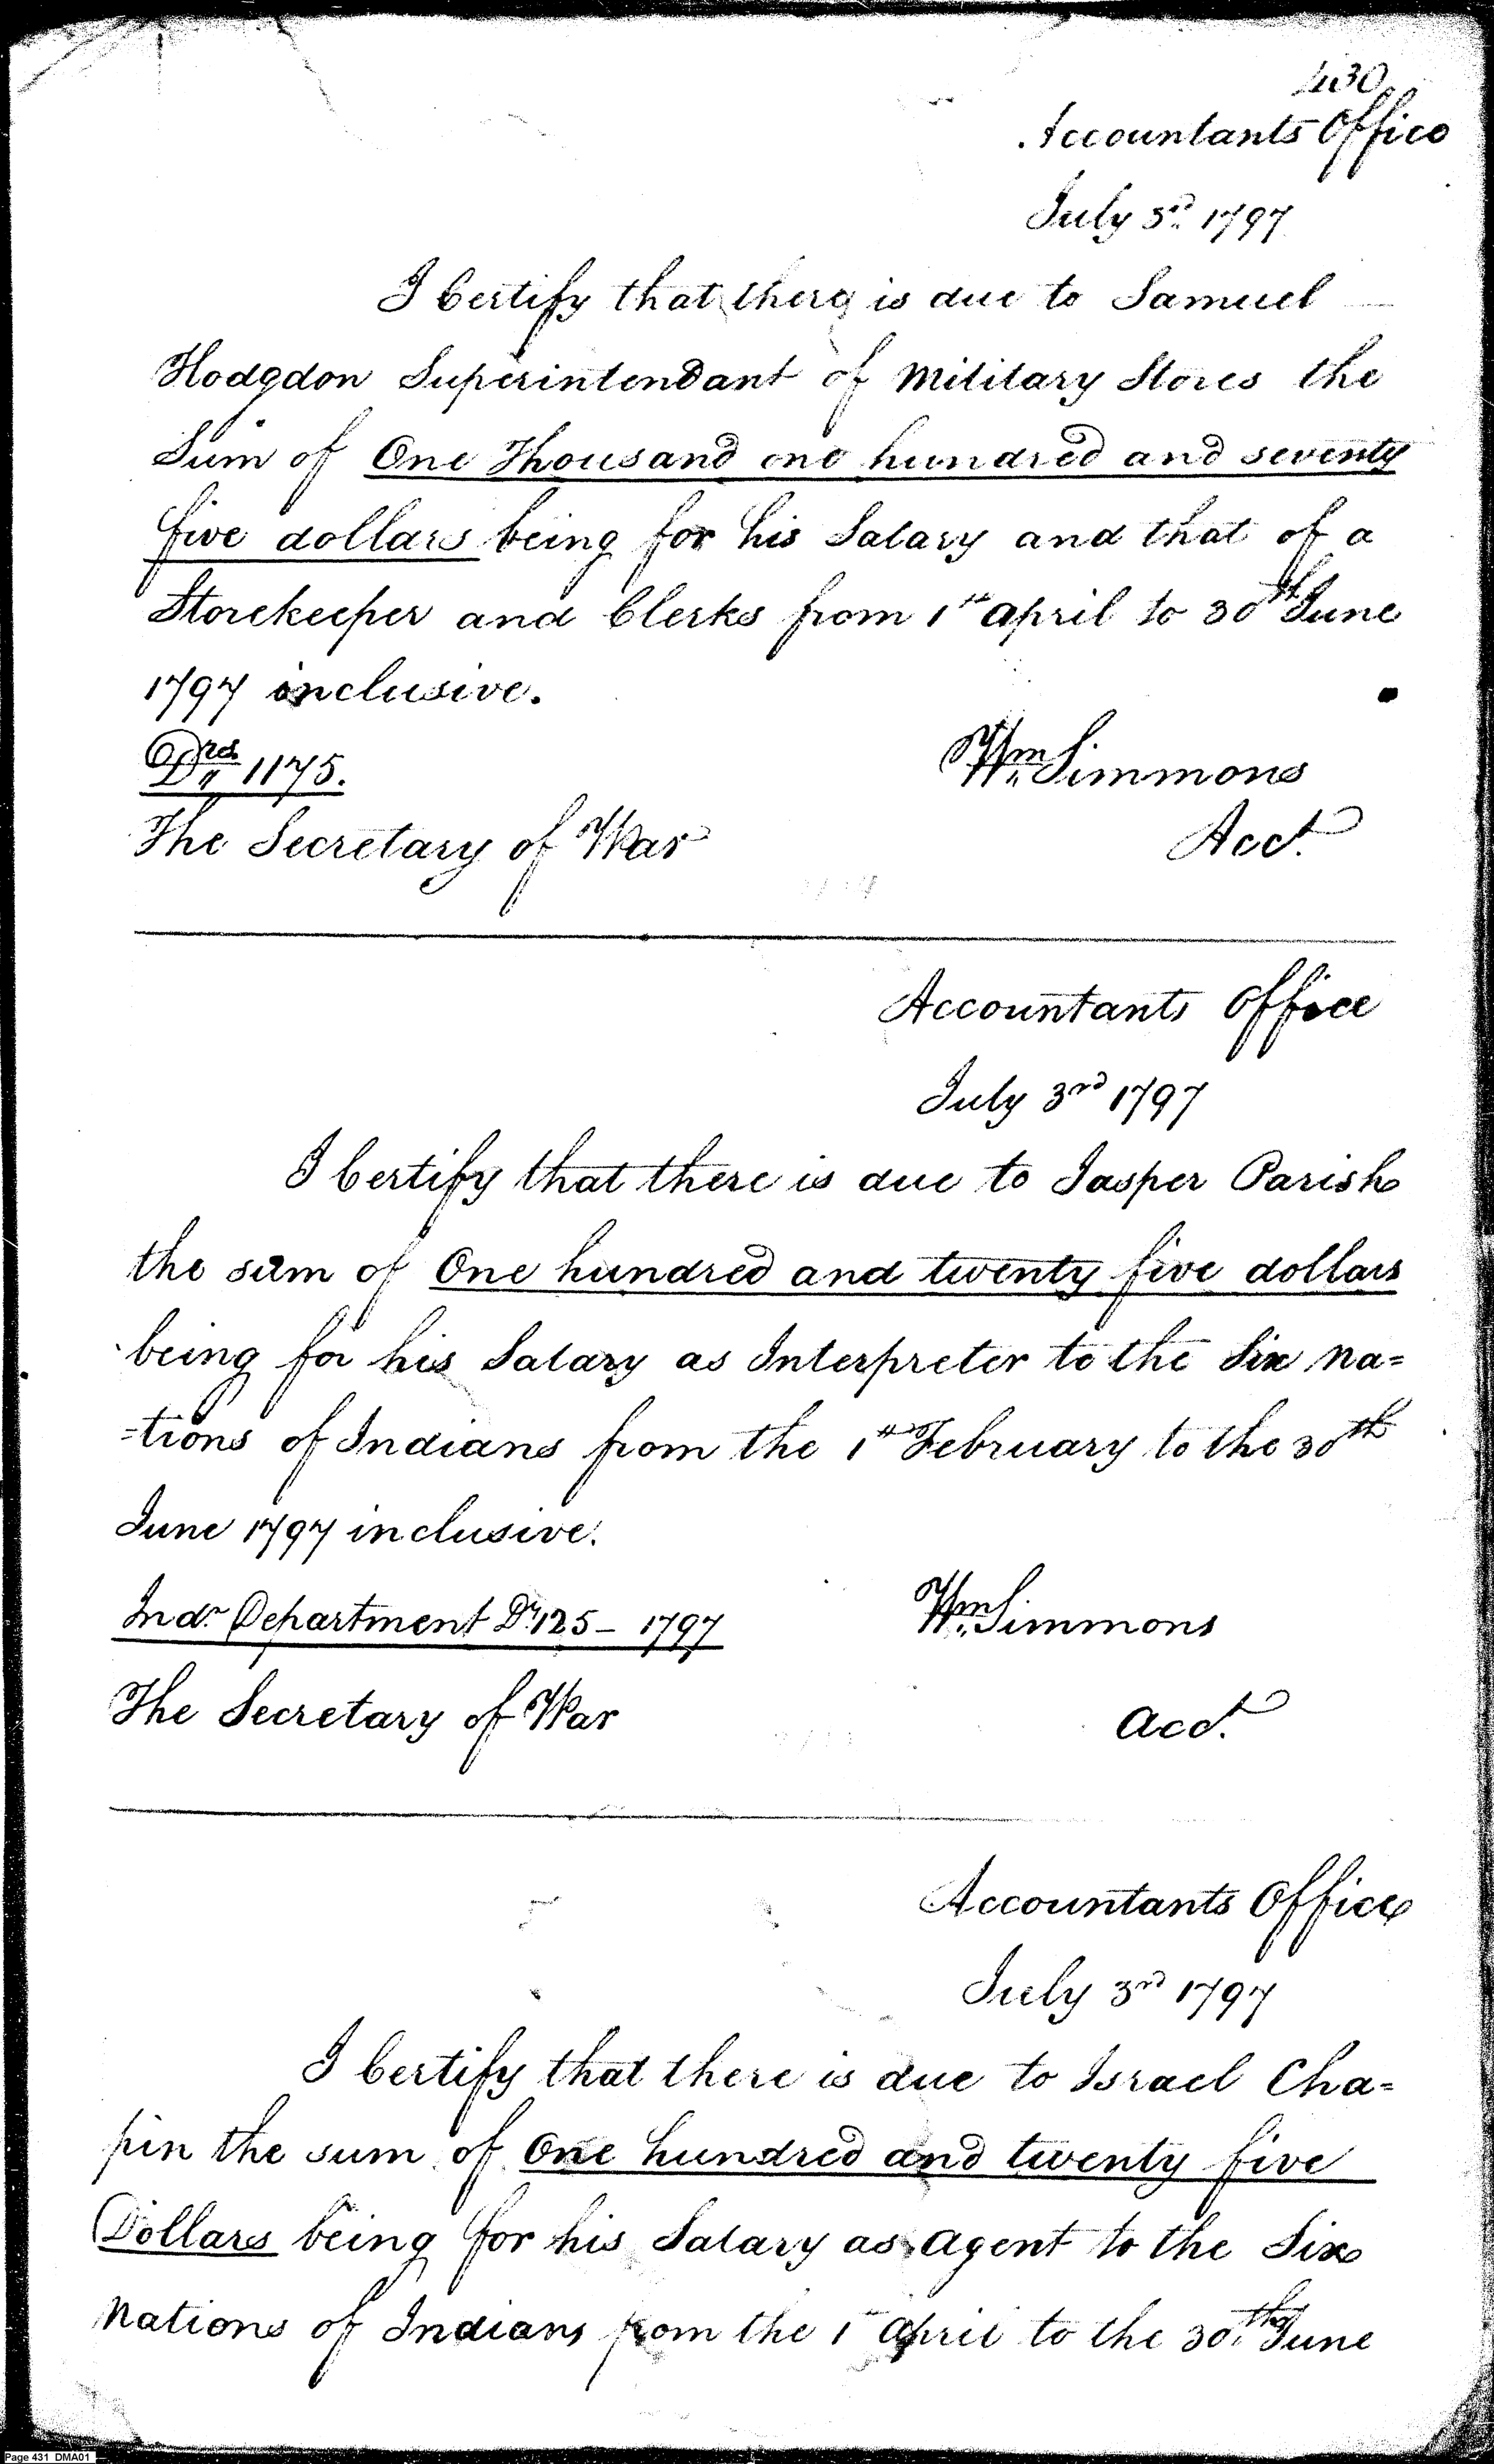 430
Accountants Office
July 3rd 1797
I Certify that there is due to Samuel
Hodgdon Superintendant of Military Stores the
Sum of One Thousand one hundred and seventy
five dollars being for his Salary and that of a
Storekeeper and Clerks from 1st April to 30th June
1797 inclusive.
Drs 1175.
Wm Simmons
The Secretary of War
Acct.
Accountants Office
July 3rd 1797
I Certify that there is due to Jasper Parish
the sum of One hundred and twenty five dollars
being for his Salary as Interpreter to the Six Na=
=tions of Indians from the 1st February to the 30th
June 1797 inclusive.
Indn Department Ds 125 - 1797
Wm Simmons
The Secretary of War
Acct.
Accountants Office
July 3rd 1797
I Certify that there is due to Israel Cha=
pin the sum of One hundred and twenty five
Dollars being for his Salary as Agent to the Six
Nations of Indians from the 1st April to the 30th June
Page 431 DMA01